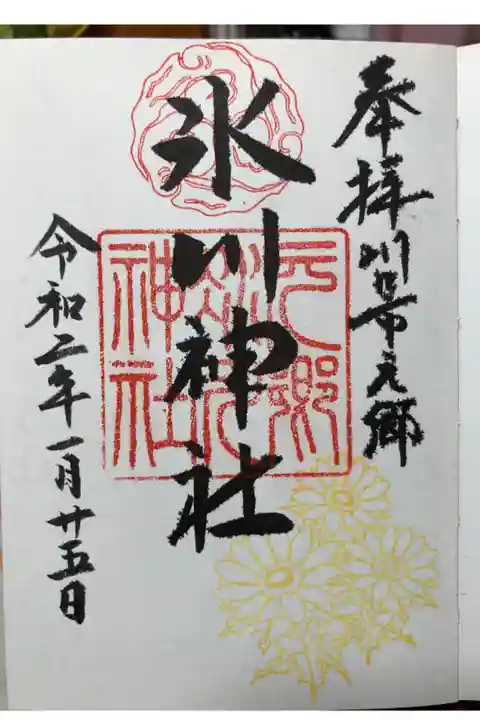 奉拝川口市元郷
氷川神社
元郷
氷川
神社
令和二年一月廿五日